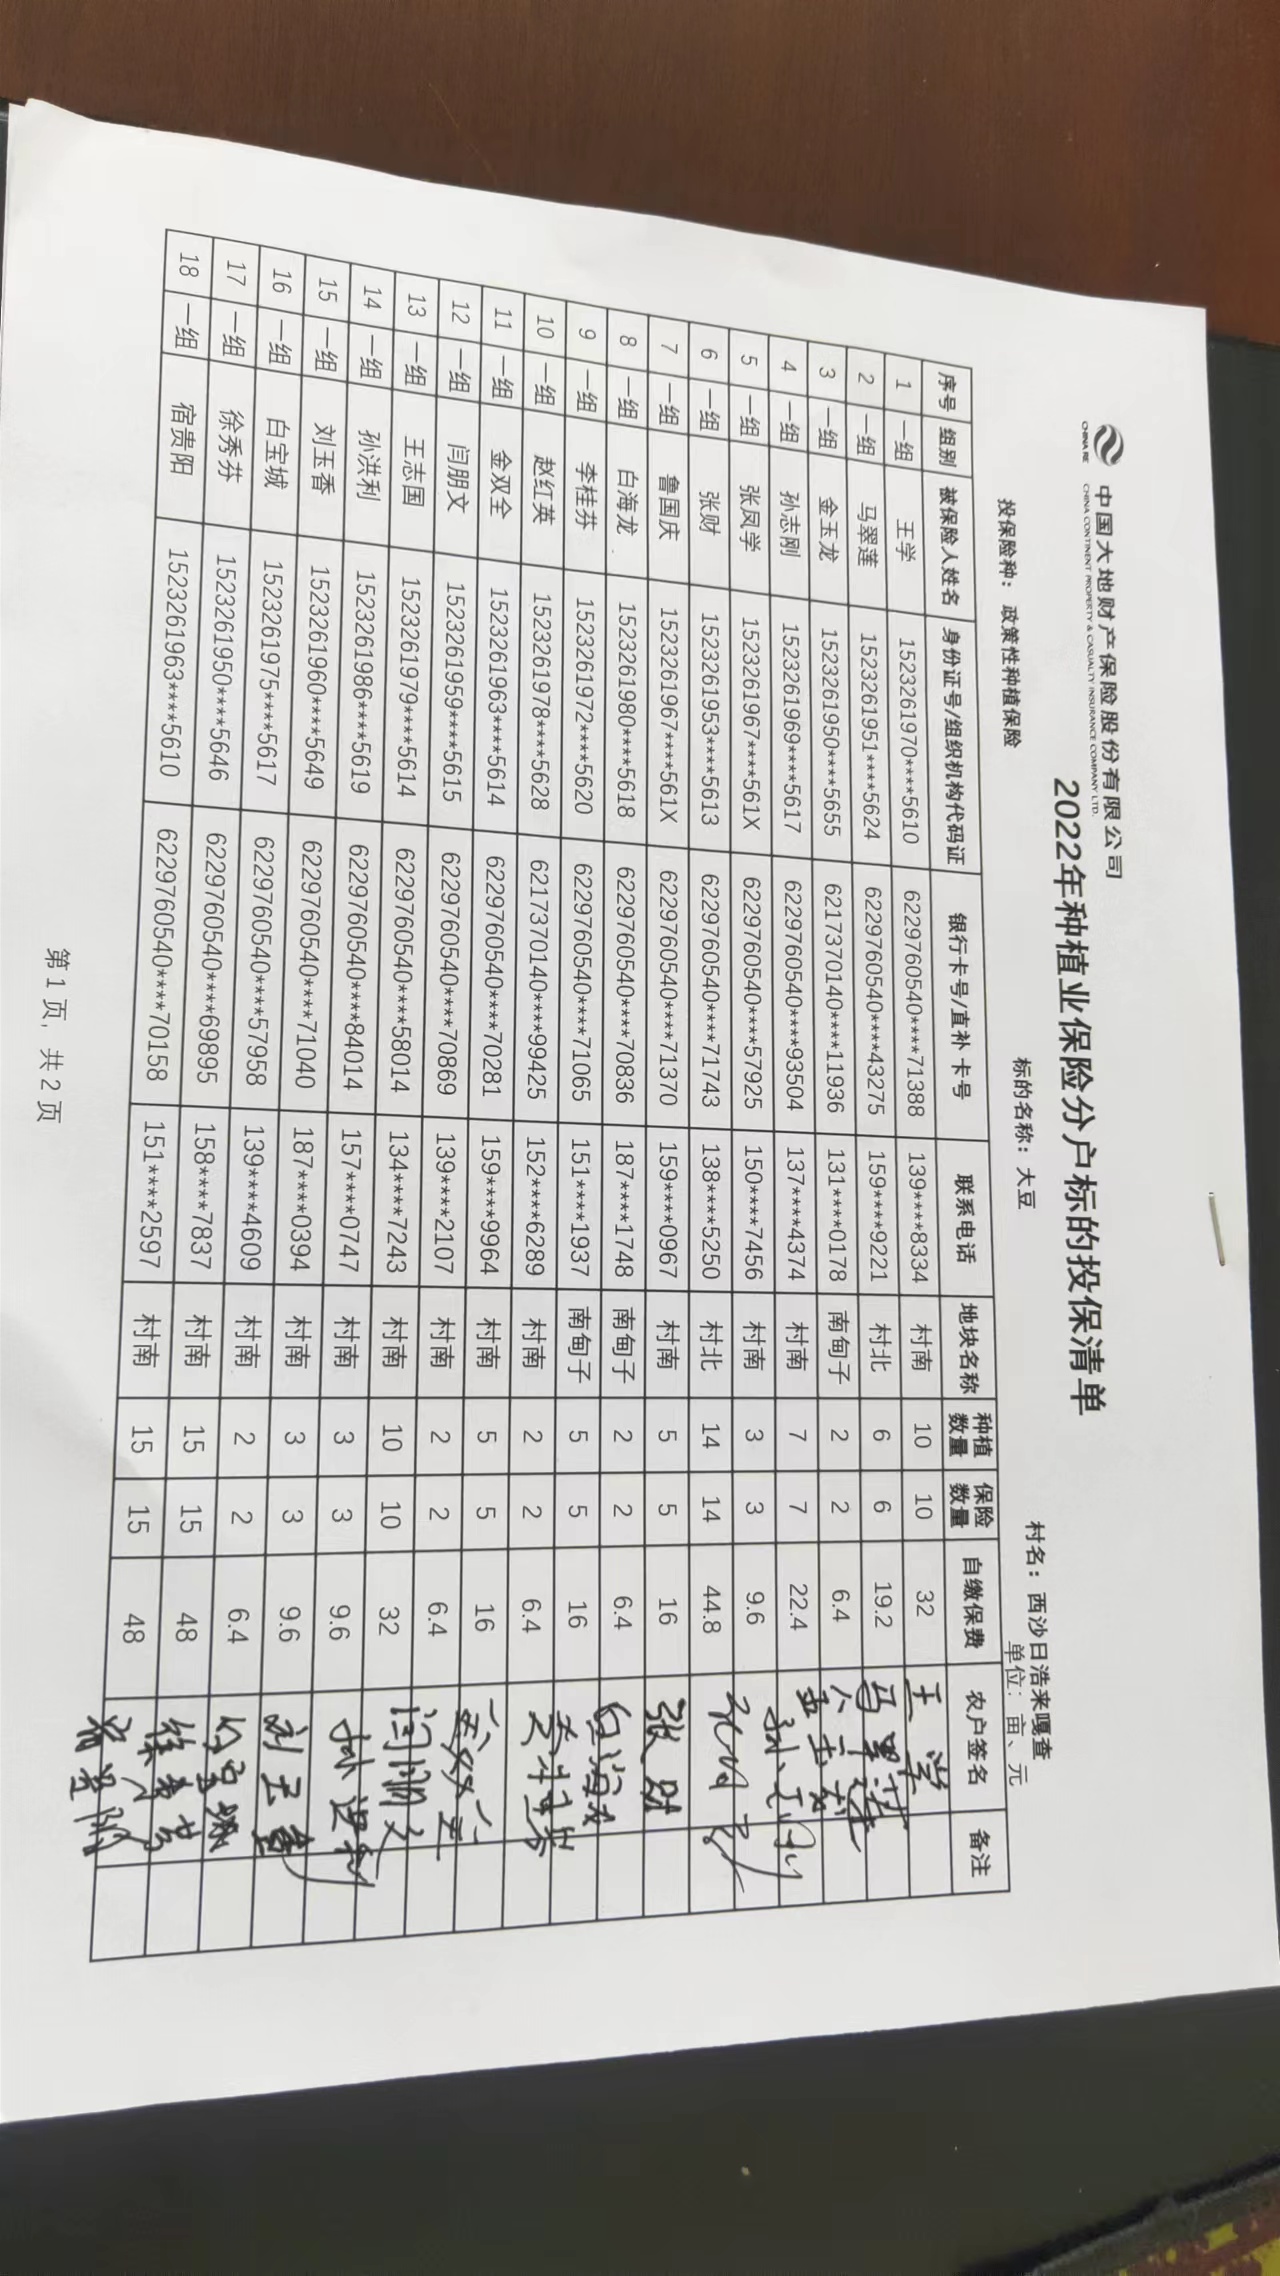 中国大地财产保险股份有限公司
CHINA RE CHINA CONTINENT PROPERTY & CASUALTY INSURANCE COMPANY LTD.
2022年种植业保险分户标的投保清单
投保险种：政策性种植保险 标的名称：大豆 村名：西沙日浩来嘎查
单位：亩、元
序号 组别 被保险人姓名 身份证号/组织机构代码证 银行卡号/直补卡号 联系电话 地块名称 种植数量 保险数量 自缴保费 农户签名 备注
1 一组 王学 1523261970****5610 6229760540****71388 139****8334 村南 10 10 32 王学
2 一组 马翠莲 1523261951****5624 6229760540****43275 159****9221 村北 6 6 19.2 马翠莲
3 一组 金玉龙 1523261950****5655 6217370140****11936 131****0178 南甸子 2 2 6.4 金玉龙
4 一组 孙志刚 1523261969****5617 6229760540****93504 137****4374 村南 7 7 22.4 孙志刚
5 一组 张凤学 1523261967****561X 6229760540****57925 150****7456 村南 3 3 9.6
6 一组 张财 1523261953****5613 6229760540****71743 138****5250 村北 14 14 44.8 张财
7 一组 鲁国庆 1523261967****561X 6229760540****71370 159****0967 村南 5 5 16
8 一组 白海龙 1523261980****5618 6229760540****70836 187****1748 南甸子 2 2 6.4 白海龙
9 一组 李桂芬 1523261972****5620 6229760540****71065 151****1937 南甸子 5 5 16 李桂芬
10 一组 赵红英 1523261978****5628 6217370140****99425 152****6289 村南 2 2 6.4
11 一组 金双全 1523261963****5614 6229760540****70281 159****9964 村南 5 5 16 金双全
12 一组 闫朋文 1523261959****5615 6229760540****70869 139****2107 村南 2 2 6.4 闫朋文
13 一组 王志国 1523261979****5614 6229760540****58014 134****7243 村南 10 10 32
14 一组 孙洪利 1523261986****5619 6229760540****84014 157****0747 村南 3 3 9.6 孙洪利
15 一组 刘玉香 1523261960****5649 6229760540****71040 187****0394 村南 3 3 9.6 刘玉香
16 一组 白宝城 1523261975****5617 6229760540****57958 139****4609 村南 2 2 6.4 白宝城
17 一组 徐秀芬 1523261950****5646 6229760540****69895 158****7837 村南 15 15 48 徐秀芬
18 一组 宿贵阳 1523261963****5610 6229760540****70158 151****2597 村南 15 15 48 宿贵阳
第 1 页, 共 2 页